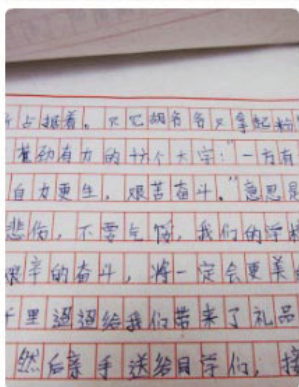 所占据着。只见胡爷爷又拿起粉
苍劲有力的十六个大字："一方有
自力更生,艰苦奋斗。"意思是
悲伤,不要气馁,我们的学校
艰辛的奋斗,将一定会更美
千里迢迢给我们带来了礼品
然后亲手送给同学们,接